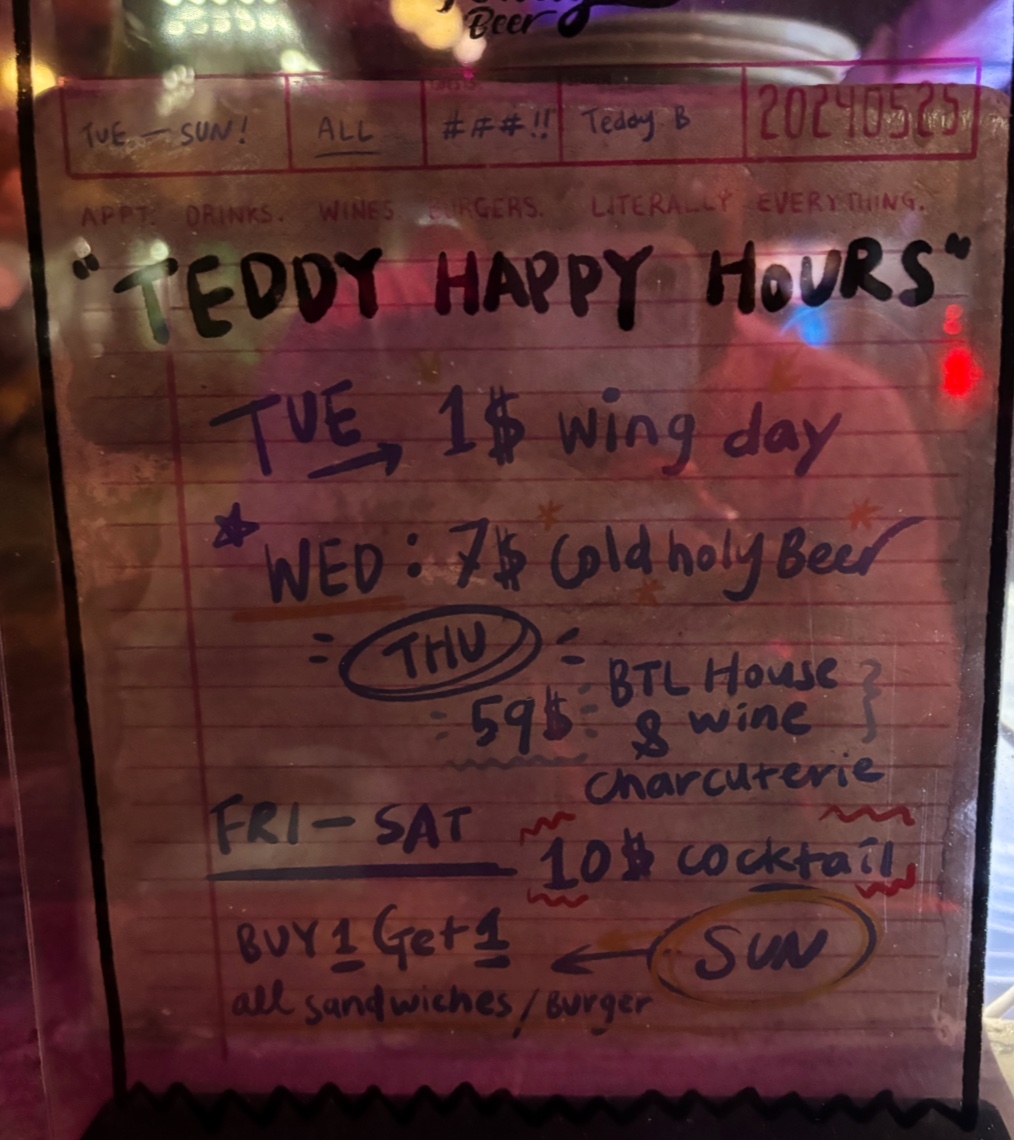 Beer
TUE — SUN! ALL ###!! Teddy B 20240525
APPT. DRINKS. WINES BURGERS. LITERALLY EVERYTHING.
"TEDDY HAPPY HOURS"
TUE → 1$ wing day
WED: 7$ Cold holy Beer
THU
59$ BTL House
& wine
charcuterie
FRI - SAT
10$ cocktail
BUY 1 Get 1 ← SUN
all sandwiches / Burger